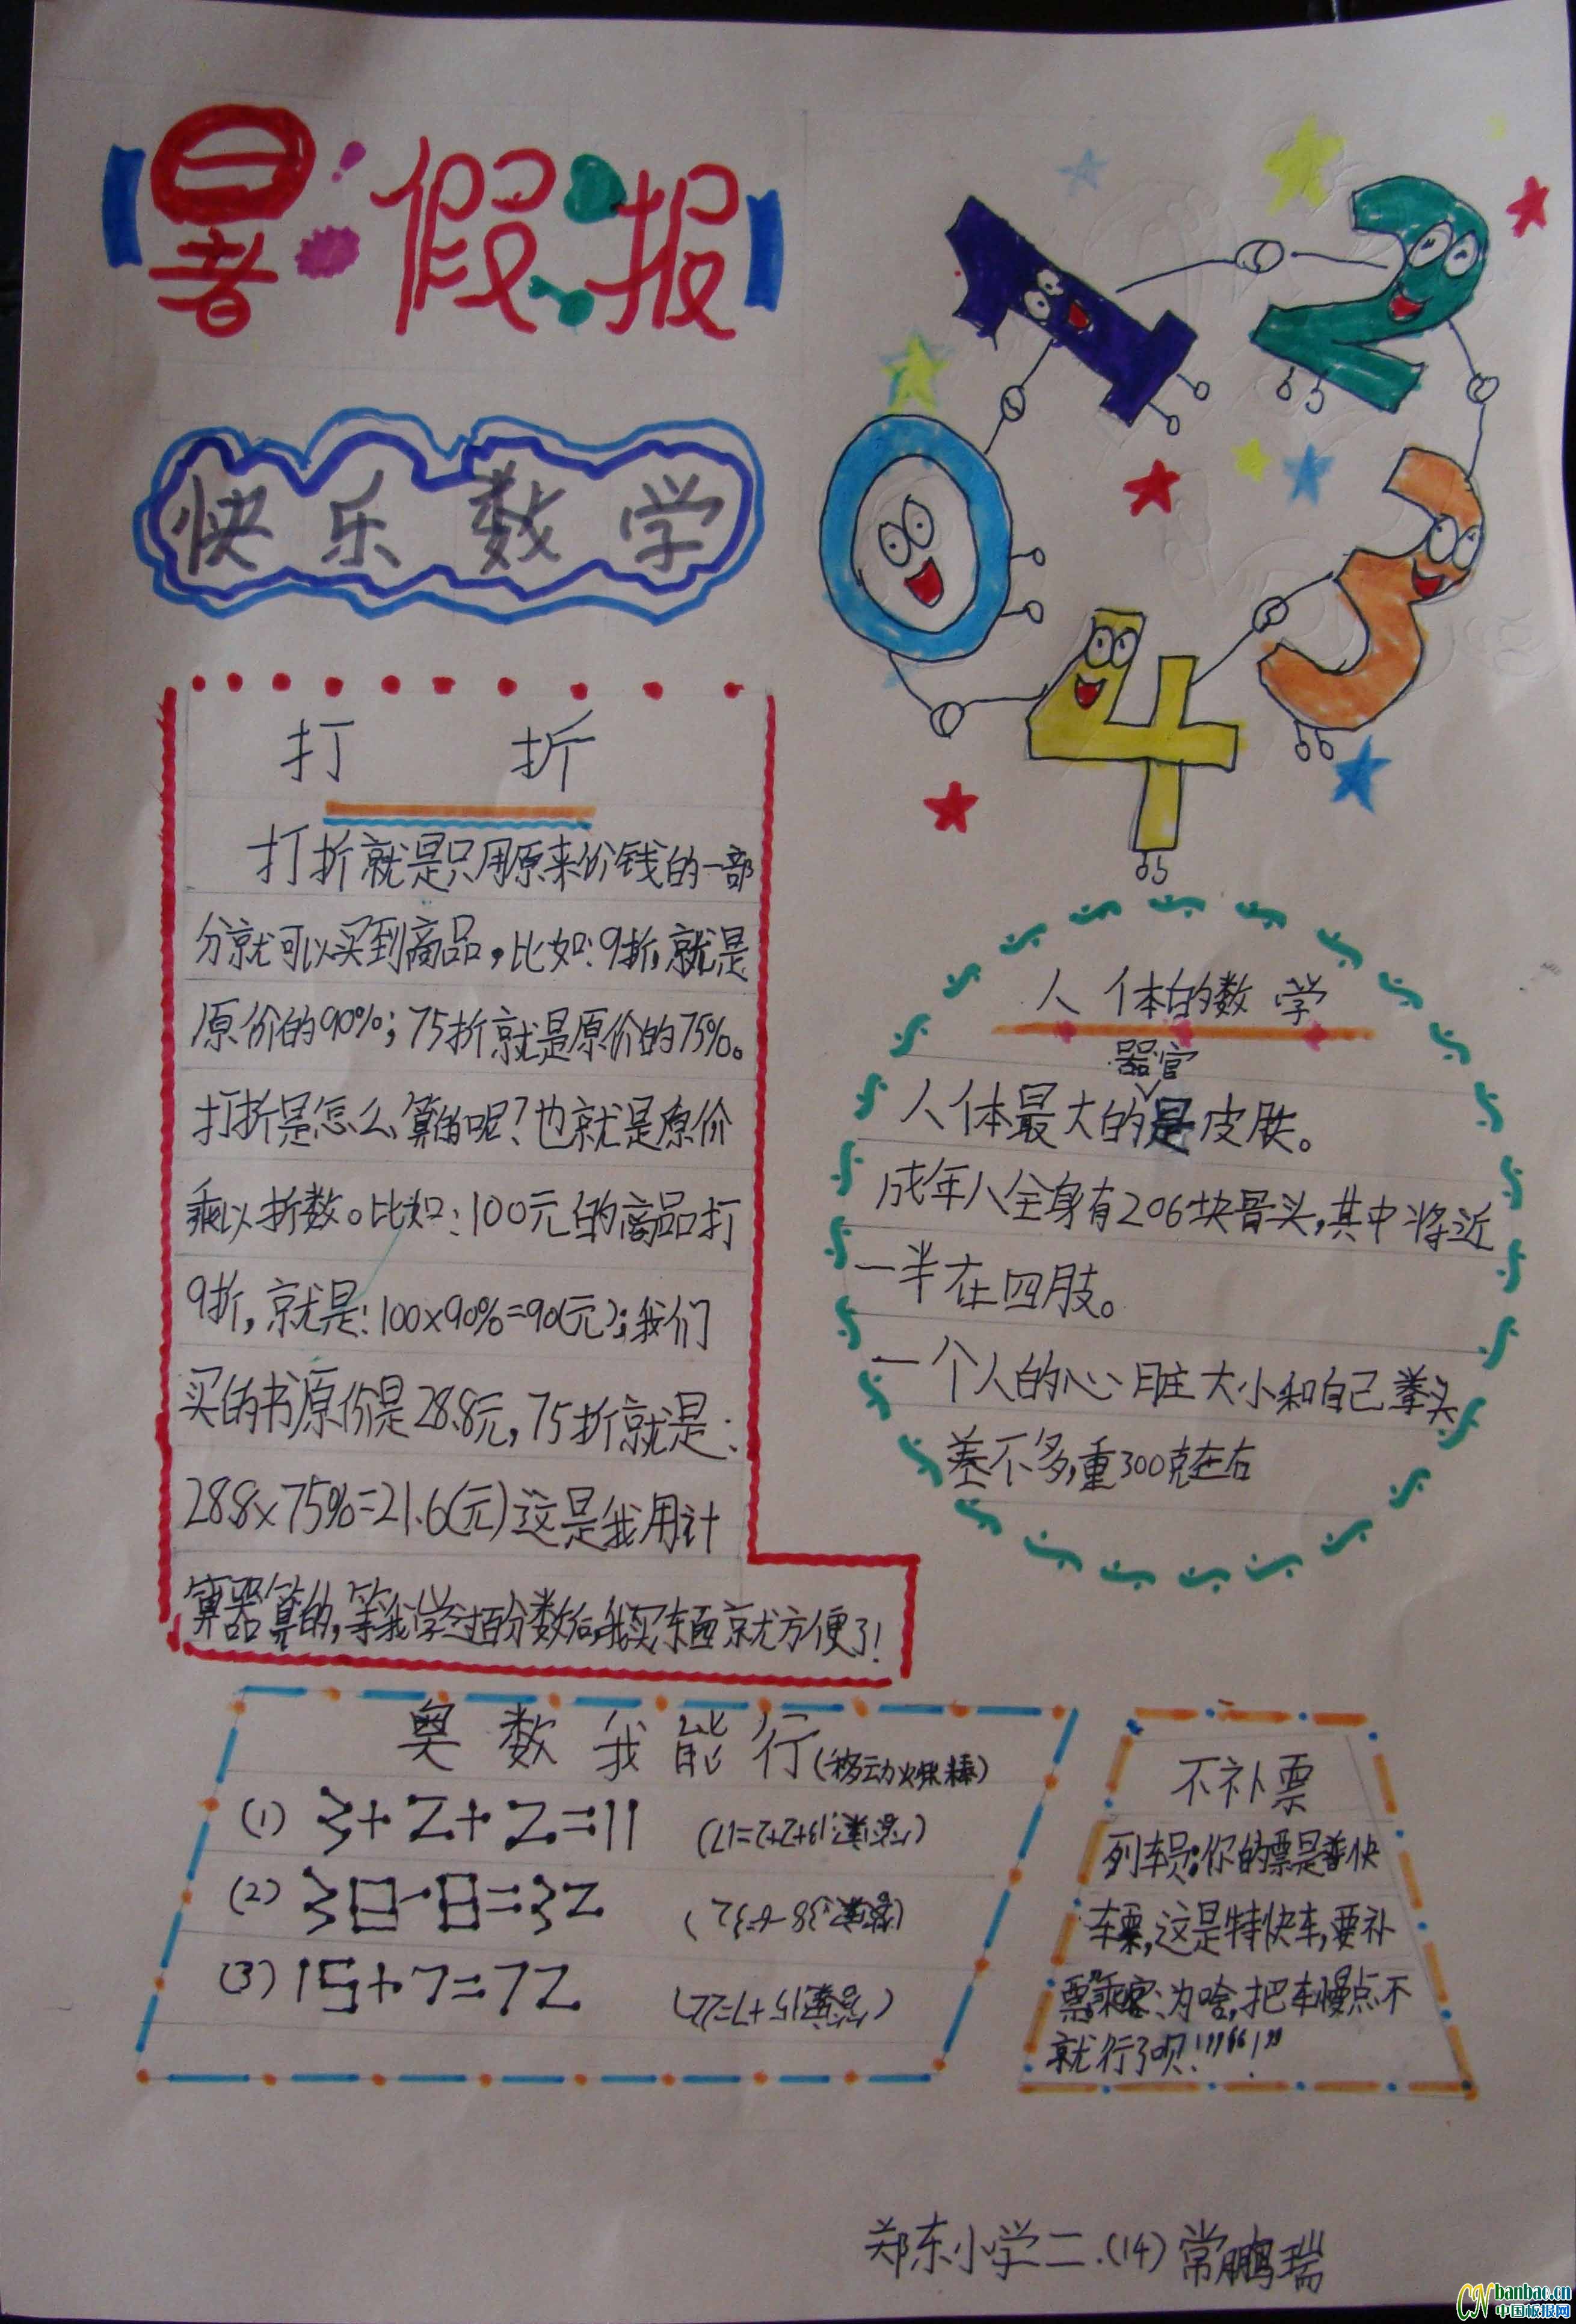 暑假报
快乐数学
打 折
打折就是只用原来价钱的一部
分就可以买到商品,比如:9折,就是
原价的90%;75折就是原价的75%。
打折是怎么算的呢?也就是原价
乘以折数。比如:100元的商品打
9折,就是:100×90%=90(元);我们
买的书原价是28.8元,75折就是:
28.8×75%=21.6(元)这是我用计
算器算的,等我学过百分数后,我买东西就方便了!
人体的数学
器官
人体最大的是皮肤。
成年人全身有206块骨头,其中将近
一半在四肢。
一个人的心脏大小和自己拳头
差不多,重300克左右
奥数我能行(移动火柴棒)
(1) 3+2+2=11 (答案:13+2+2=17)
(2) 30-8=32 (答案:38-6=32)
(3) 15+7=72 (答案:15+7=22)
不补票
列车员:你的票是普快
车票,这是特快车,要补
票"乘客:为啥,把车慢点不
就行了呗!"
郑东小学二.(14) 常鹏瑞
CN banbao.cn
中国板报网